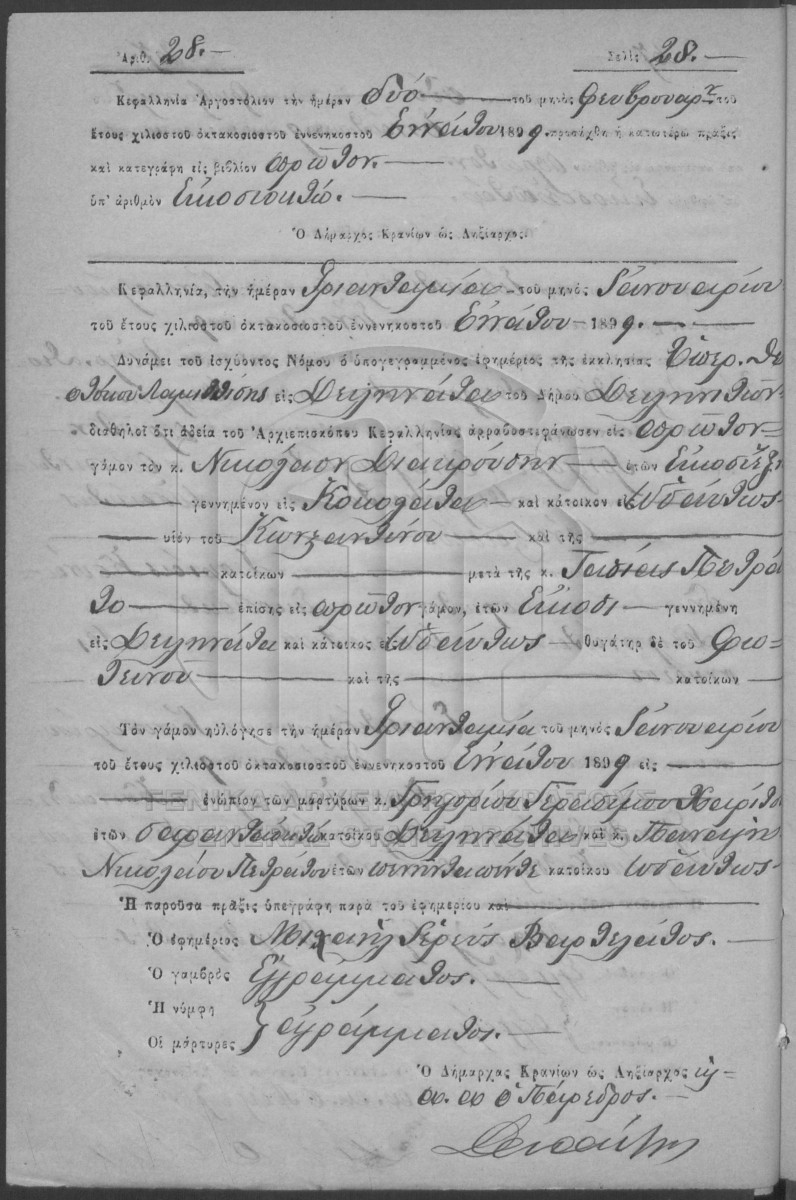 Ἀριθ. 28.— Σελὶς 28.—
Κεφαλληνία Ἀργοστόλιον τὴν ἡμέραν δύο τοῦ μηνὸς Φευβρουαρ. τοῦ
ἔτους χιλιοστοῦ ὀκτακοσιοστοῦ ἐννενηκοστοῦ Ἐννάτου 1899. προσήχθη ἡ κατωτέρω πρᾶξις
καὶ κατεγράφη εἰς βιβλίον πρῶτον.—
ὑπ' ἀριθμὸν Εἰκοσιοκτώ.—
Ὁ Δήμαρχος Κρανίων ὡς Ληξίαρχος.
Κεφαλληνία, τὴν ἡμέραν Τριανταμία τοῦ μηνὸς Ἰαννουαρίου
τοῦ ἔτους χιλιοστοῦ ὀκτακοσιοστοῦ ἐννενηκοστοῦ Ἐννάτου 1899.—
Δυνάμει τοῦ ἰσχύοντος Νόμου ὁ ὑπογεγραμμένος ἐφημέριος τῆς ἐκκλησίας Ὑπερ. Θε
οτόκου εἰς Δειληνάτα τοῦ Δήμου Δειληνατῶν
διαθηλοῖ ὅτι ἀδείᾳ τοῦ Ἀρχιεπισκόπου Κεφαλληνίας ἀρραβοστεφάνωσεν εἰς πρῶτον
γάμον τὸν κ. Νικόλαον Διακρούσην ἐτῶν Εἰκοσιἕξ
γεννημένον εἰς Κοκολάτα καὶ κάτοικον εἰς ὡσαύτως
υἱὸν τοῦ Κωνσταντίνου καὶ τῆς
κατοίκων μετὰ τῆς κ. Πετρά
το ἐπίσης εἰς πρῶτον γάμον, ἐτῶν Εἴκοσι γεννημένη
εἰς Δειληνάτα καὶ κάτοικος εἰς ὡσαύτως θυγάτηρ δὲ τοῦ Φω
τεινοῦ καὶ τῆς κατοίκων
Τὸν γάμον ηὐλόγησε τὴν ἡμέραν Τριανταμία τοῦ μηνὸς Ἰαννουαρίου
τοῦ ἔτους χιλιοστοῦ ὀκτακοσιοστοῦ ἐννενηκοστοῦ Ἐννάτου 1899 εἰς
ἐνώπιον τῶν μαρτύρων κ. Γρηγορίου Γερασίμου
ΓΕΝΙΚΑ ΑΡΧΕΙΑ ΤΟΥ ΚΡΑΤΟΥΣ
ἐτῶν σαραντα κατοίκου Δειληνάτα καὶ κ. Παναγῆ
Νικολάου Πετράτου ἐτῶν πενηνταπέντε κατοίκου ὡσαύτως
Ἡ παροῦσα πρᾶξις ὑπεγράφη παρὰ τοῦ ἐφημερίου καὶ
Ὁ ἐφημέριος Μιχαὴλ Ἱερεὺς Βαρτελάτος.—
Ὁ γαμβρὸς Ἐγγράμματος.—
Ἡ νύμφη
Οἱ μάρτυρες } ἀγράμματος.—
Ὁ Δήμαρχας Κρανίων ὡς Ληξίαρχος
α. α ὁ Πάρεδρος.—